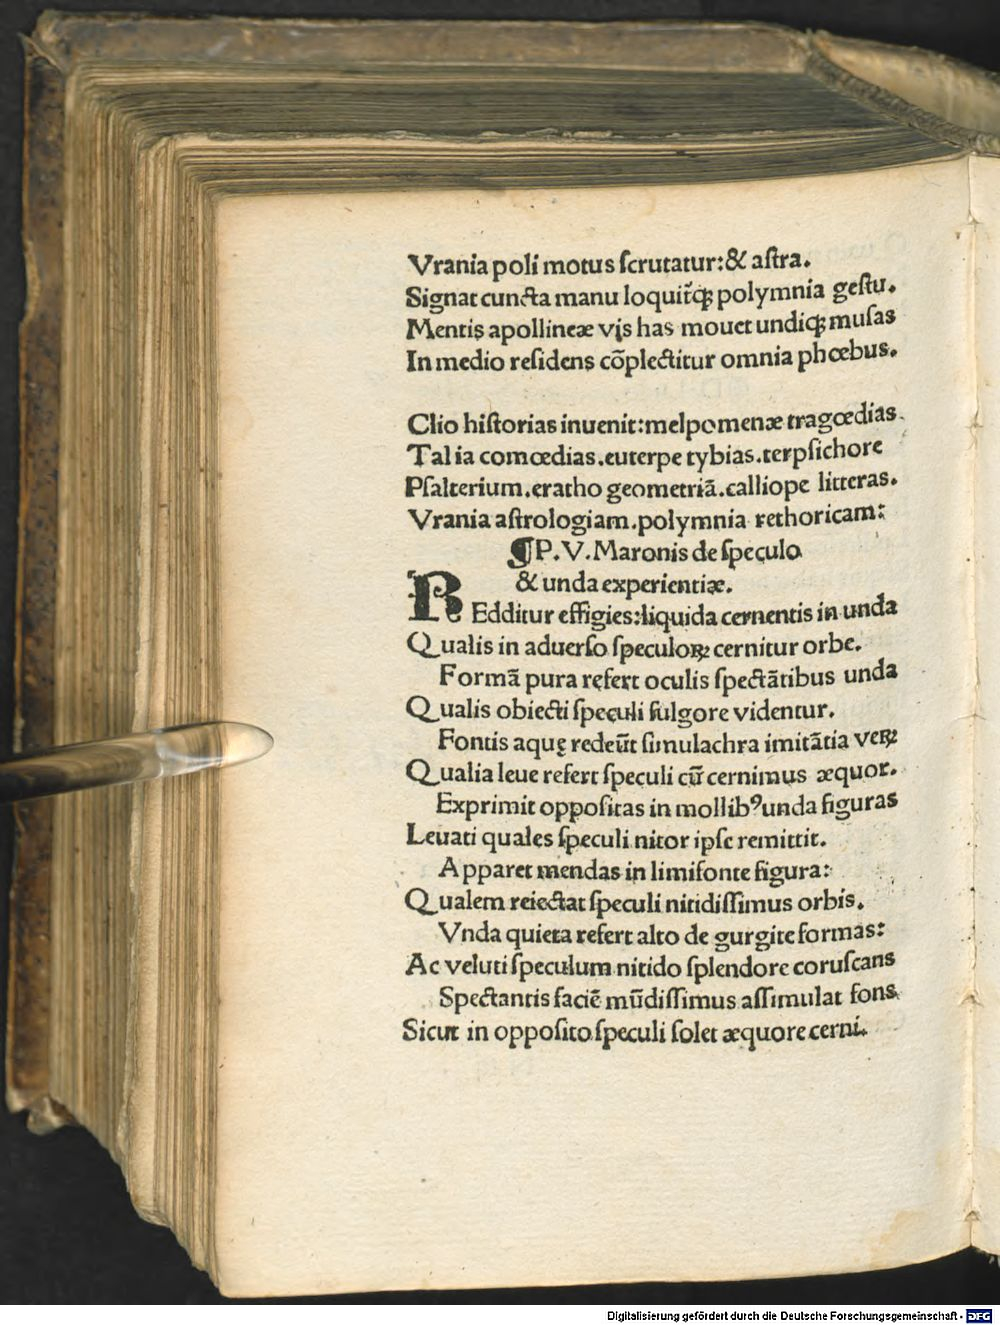 Vrania poli motus ſcrutatur:& aſtra.
Signat cuncta manu loquit᷑qꝫ polymnia geſtu.
Mentis apollineæ vis has mouet undiqꝫ muſas
In medio reſidens cõplectitur omnia phœbus.
Clio hiſtorias inuenit:melpomenæ tragœdias.
Talia comœdias.euterpe tybias.terpſichore
Pſalterium.eratho geometriã.calliope litteras.
Vrania aſtrologiam.polymnia rethoricam:
¶P.V.Maronis de ſpeculo
& unda experientiæ.
REdditur effigies:liquida cernentis in unda
Qualis in aduerſo ſpeculoꝝ cernitur orbe.
Formã pura refert oculis ſpectãtibus unda
Qualis obiecti ſpeculi fulgore videntur.
Fontis aquę redeũt ſimulachra imitãtia veꝝ
Qualia leue refert ſpeculi cũ cernimus æquor.
Exprimit oppoſitas in mollibꝰ unda figuras
Leuati quales ſpeculi nitor ipſe remittit.
Apparet mendas in limifonte figura:
Qualem reiectat ſpeculi nitidiſſimus orbis.
Vnda quieta refert alto de gurgite formas:
Ac veluti ſpeculum nitido ſplendore coruſcans
Spectantis faciẽ mũdiſſimus aſſimulat fons
Sicut in oppoſito ſpeculi ſolet æquore cerni.
Digitalisierung gefördert durch die Deutsche Forschungsgemeinschaft - DFG